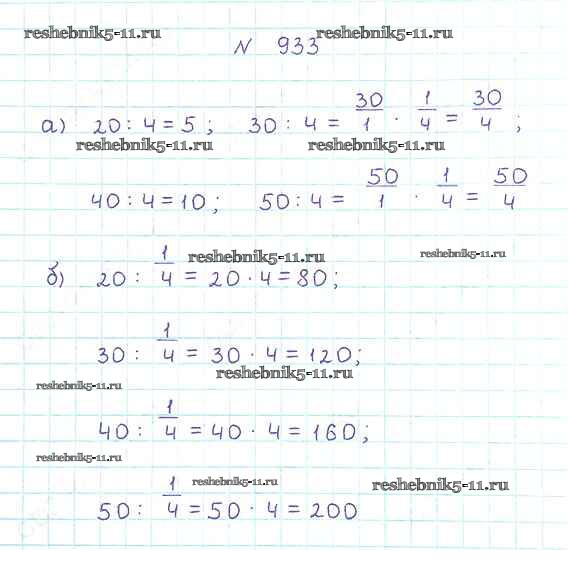 reshebnik5-11.ru reshebnik5-11.ru
N 933
а) 20 : 4 = 5 ; 30 : 4 = 30/1 · 1/4 = 30/4 ;
reshebnik5-11.ru reshebnik5-11.ru
40 : 4 = 10 ; 50 : 4 = 50/1 · 1/4 = 50/4
reshebnik5-11.ru reshebnik5-11.ru
б) 20 : 1/4 = 20 · 4 = 80 ;
30 : 1/4 = 30 · 4 = 120 ;
reshebnik5-11.ru
reshebnik5-11.ru
40 : 1/4 = 40 · 4 = 160 ;
reshebnik5-11.ru
reshebnik5-11.ru reshebnik5-11.ru
50 : 1/4 = 50 · 4 = 200